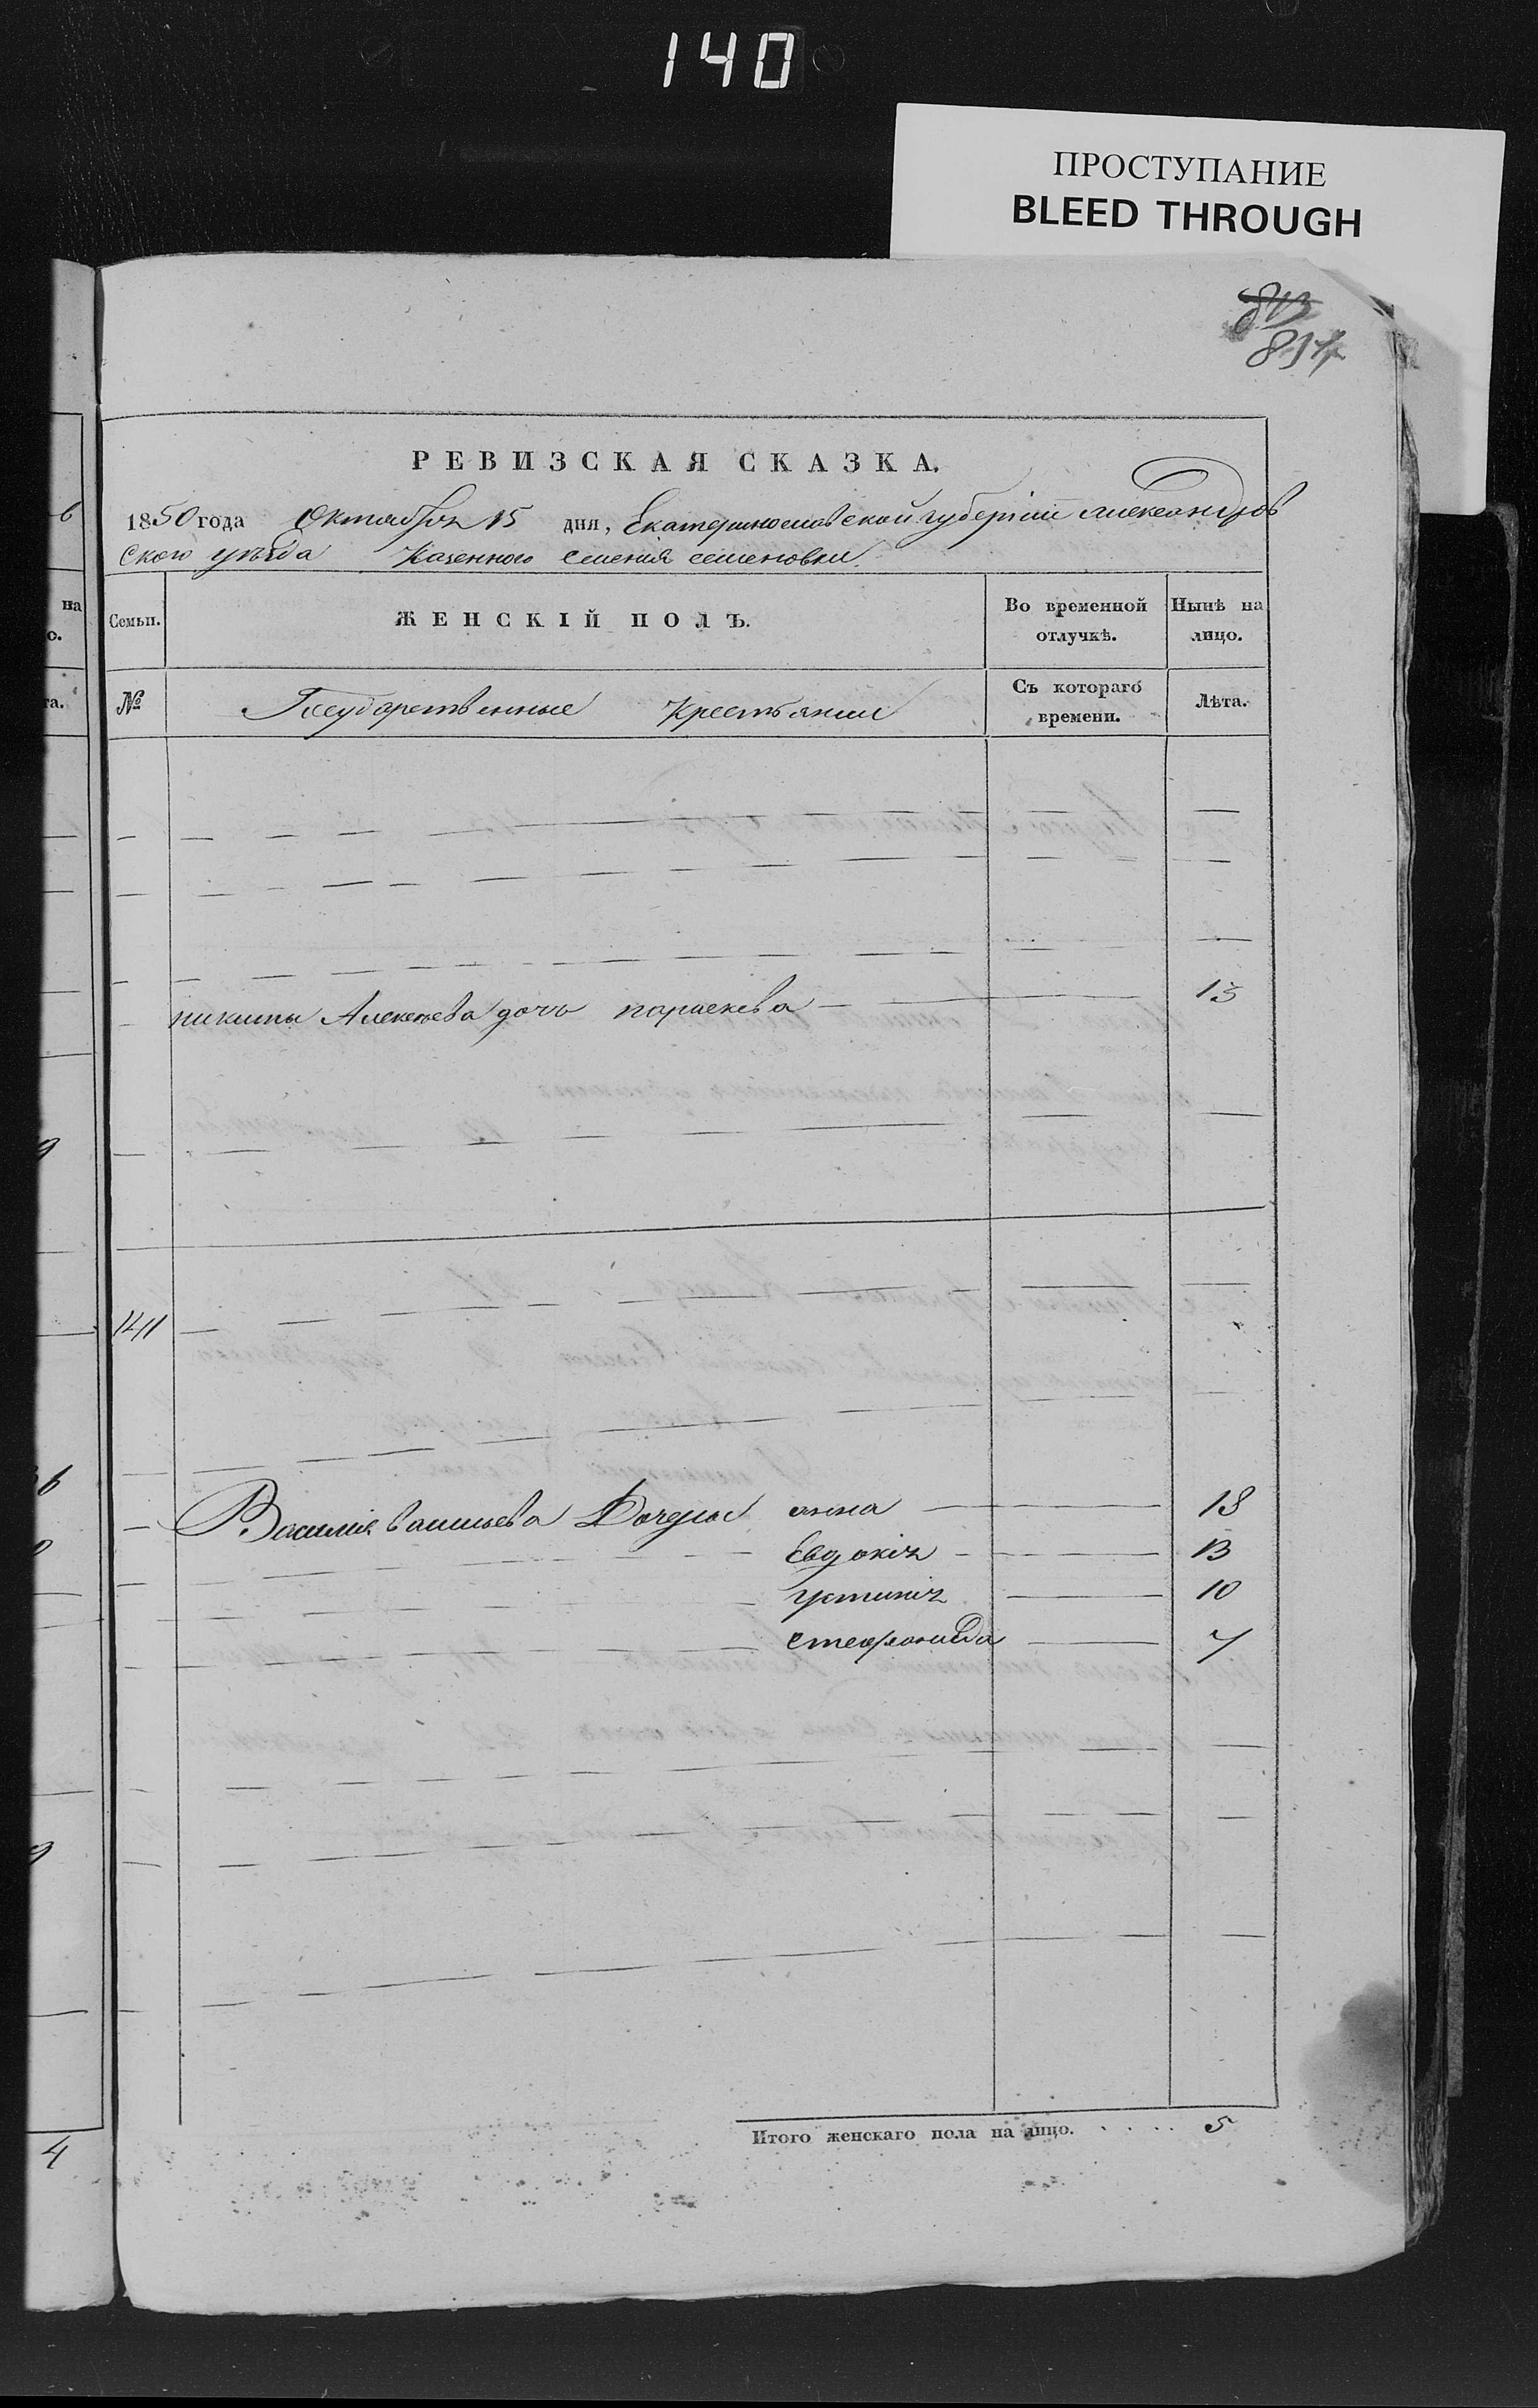 140
ПРОСТУПАНИЕ
BLEED THROUGH
817
РЕВИЗСКАЯ СКАЗКА.
1850 года Октября 15 дня, Екатеринославской губернiи Александров
ского уѣзда Казенного селения семеновки
Семьи. ЖЕНСКIЙ ПОЛЪ. Во временной отлучкѣ. Нынѣ на лицо.
№ Государственные Крестьяни Съ котораго времени. Лѣта.
никиты Алексѣева дочь параскева 13
141
Василия васильева Дочери анна 18
Евдокiя 13
устинiя 10
стефанида 7
Итого женскаго пола на лицо. . . . . 5
на
о.
та.
6
9
6
0
9
4